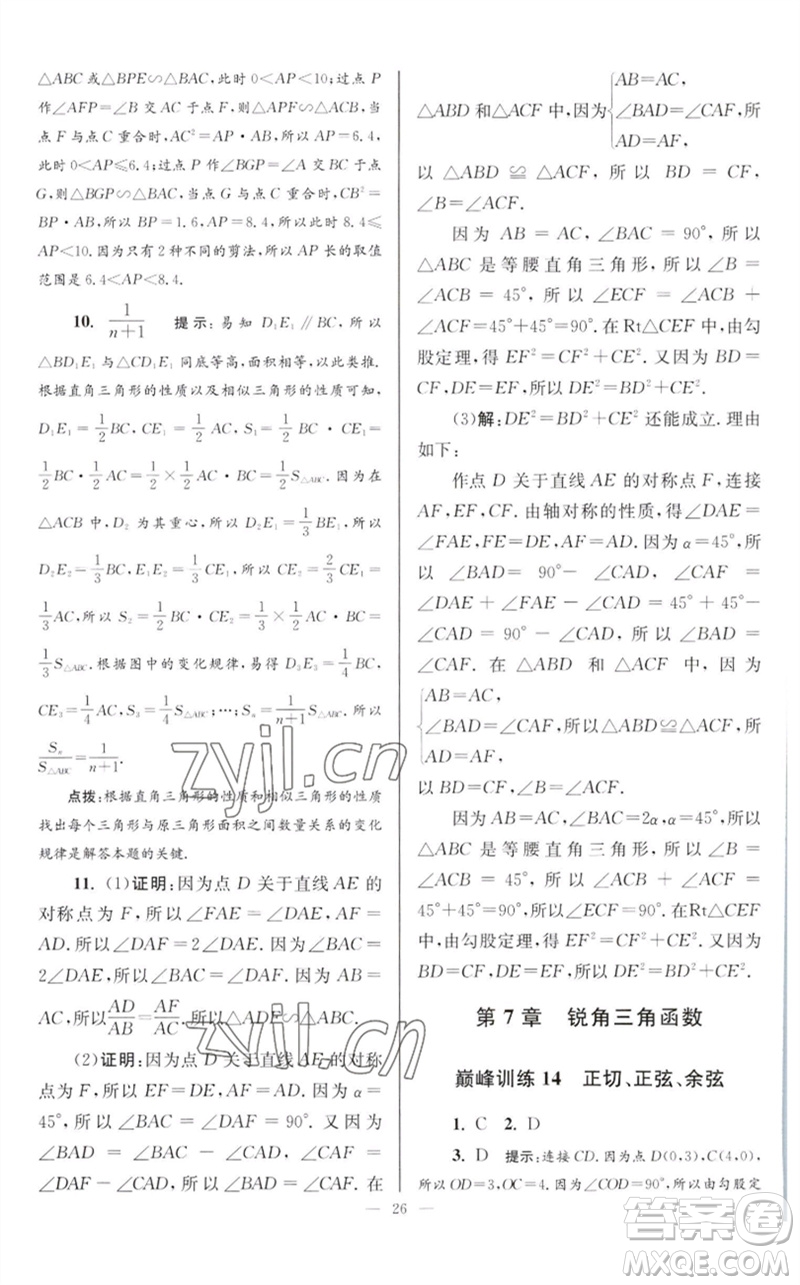 △ABC或△BPE∽△BAC,此时0<AP<10;过点P
作∠AFP=∠B交AC于点F,则△APF∽△ACB,当
点F与点C重合时,AC²=AP·AB,所以AP=6.4,
此时0<AP≤6.4;过点P作∠BGP=∠A交BC于点
G,则△BGP∽△BAC,当点G与点C重合时,CB²=
BP·AB,所以BP=1.6,AP=8.4,所以8.4≤
AP<10.因为只有2种不同的剪法,所以AP长的取值
范围是6.4<AP<8.4.
10. 1/(n+1) 提示:易知D₁E₁∥BC,所以
△BD₁E₁与△CD₁E₁同底等高,面积相等,以此类推.
根据直角三角形的性质以及相似三角形的性质可知,
D₁E₁=1/2BC,CE₁=1/2AC,S₁=1/2BC·CE₁=
1/2BC·1/2AC=1/2×1/2AC·BC=1/2S△ABC.因为在
△ACB中,D₂为其重心,所以D₂E₁=1/3BE₁,所以
D₂E₂=1/3BC,E₁E₂=1/3CE₁,所以CE₂=2/3CE₁=
1/3AC,所以S₂=1/2×1/3BC·CE₂=1/3BC·1/2AC=
1/3S△ABC.根据图中的变化规律,易得D₃E₃=1/4BC,
CE₃=1/4AC,S₃=1/4S△ABC;…;Sₙ=1/(n+1)S△ABC.所以
Sₙ/S△ABC=1/(n+1).
点拨:根据直角三角形的性质和相似三角形的性质
找出每个三角形与原三角形面积之间数量关系的变化
规律是解答本题的关键.
11. (1)证明:因为点D关于直线AE的
对称点为F,所以∠FAE=∠DAE,AF=
AD.所以∠DAF=2∠DAE.因为∠BAC=
2∠DAE,所以∠DAF=∠BAC.因为AB=
AC,所以AD/AB=AF/AC.所以△ADF∽△ABC.
(2)证明:因为点D关于直线AE的对称
点为F,所以EF=DE,AF=AD.因为α=
45°,所以∠DAF=∠BAC=90°.又因为
∠BAD=∠BAC-∠CAD,∠CAF=
∠DAF-∠CAD,所以∠BAD=∠CAF.在
△ABD和△ACF中,因为{AB=AC,
∠BAD=∠CAF,所
AD=AF,
以△ABD≌△ACF,所以BD=CF,
∠B=∠ACF.
因为AB=AC,∠BAC=90°,所以
△ABC是等腰直角三角形,所以∠B=
∠ACB=45°,所以∠ECF=∠ACB+
∠ACF=45°+45°=90°.在Rt△CEF中,由勾
股定理,得EF²=CF²+CE².又因为BD=
CF,DE=EF,所以DE²=BD²+CE².
(3)解:DE²=BD²+CE²还能成立.理由
如下:
作点D关于直线AE的对称点F,连接
AF,EF,CF.由轴对称的性质,得∠DAE=
∠FAE,FE=DE,AF=AD.因为α=45°,所
以∠BAD=90°-∠CAD,∠CAF=
∠DAE+∠FAE-∠CAD=45°+45°-
∠CAD=90°-∠CAD,所以∠BAD=
∠CAF.在△ABD和△ACF中,
{AB=AC,
∠BAD=∠CAF,所以△ABD≌△ACF,所
AD=AF,
以BD=CF,∠B=∠ACF.
因为AB=AC,∠BAC=2α,α=45°,所
以∠ECF=∠ACB+∠ACF=∠ACB+∠B=
45°+45°=90°,所以∠ECF=90°.在Rt△CEF
中,由勾股定理,得EF²=CF²+CE².又因为
BD=CF,DE=EF,所以DE²=BD²+CE².
第7章 锐角三角函数
巅峰训练14 正切、正弦、余弦
1. C 2. D
3. D 提示:连接CD.因为点D(0,3),C(4,0),
所以OD=3,OC=4.因为∠COD=90°,所以由勾股定
— 26 —
zyjl.cn
zyjl.cn
答案圈
MXQE.COM